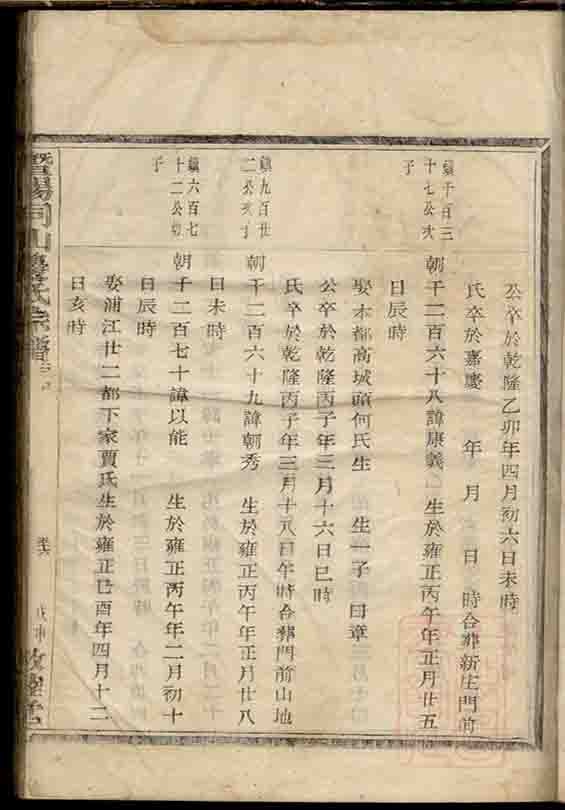 公卒於乾隆乙卯年四月初六日未時
氏卒於嘉慶 年 月 日 時合葬新庄門前
鎮千百三十七公次子
朝千二百六十八諱康義 生於雍正丙午年正月廿五
日辰時
娶本都高城頭何氏生 生一子曰章
公卒於乾隆丙子年三月十六日巳時
氏卒於乾隆丙子年三月十八日午時合葬門前山地
鎮九百廿二公次子
朝千二百六十九諱朝秀 生於雍正丙午年正月廿八
日未時
鎮六百七十二公幼子
朝千二百七十諱以能 生於雍正丙午年二月初十
日辰時
娶浦江廿二都下家賈氏生於雍正己酉年四月十二
日亥時
暨陽同山壽氏宗譜
戊申